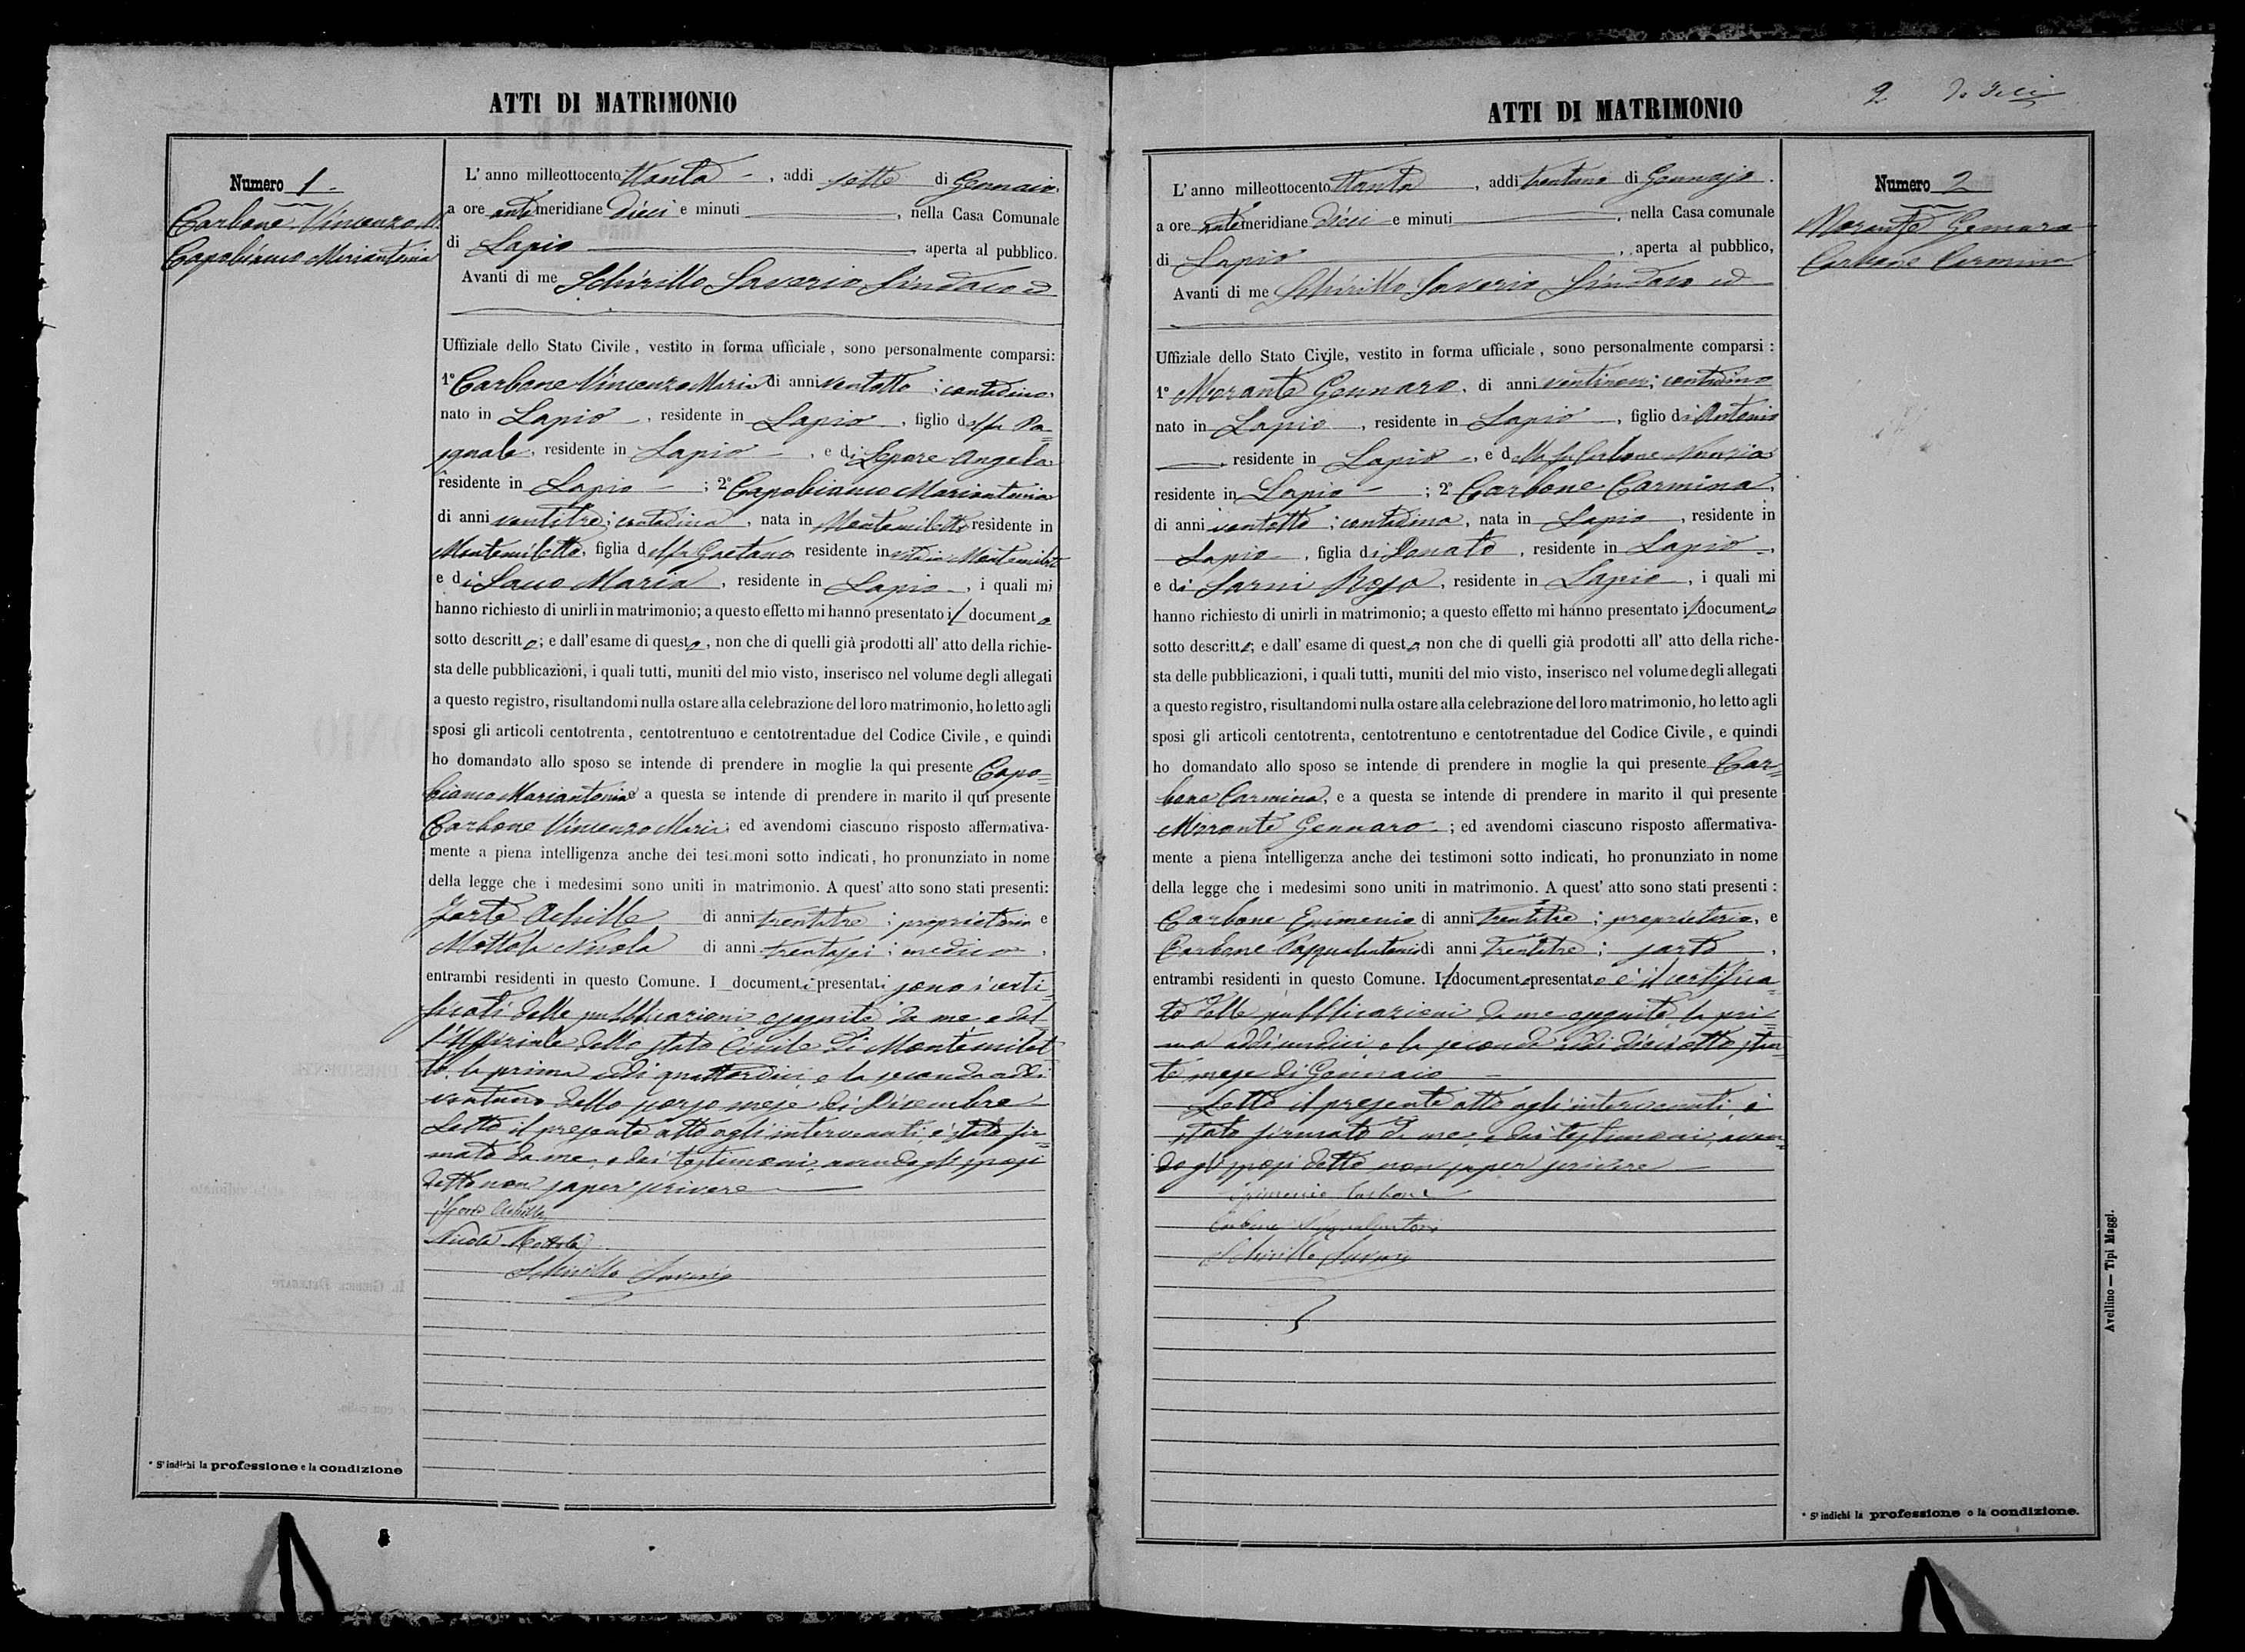 ATTI DI MATRIMONIO
Numero 1.
Carbone Vincenzo M.
Capobianco Mariantonia
L' anno milleottocento ttanta, addi sette di Gennaio.
a ore antimeridiane dieci e minuti, nella Casa Comunale
di Lapio aperta al pubblico.
Avanti di me Schirillo Saverio Sindaco ed
Uffiziale dello Stato Civile, vestito in forma ufficiale, sono personalmente comparsi:
1° Carbone Vincenzo Maria di anni ventotto; contadino,
nato in Lapio, residente in Lapio, figlio del fu Pa=
squale, residente in Lapio, e di Lepore Angela
residente in Lapio; 2° Capobianco Mariantonia
di anni ventitre; contadina, nata in Montemiletto residente in
Montemiletto, figlia del fu Gaetano residente in vita in Montemiletto
e di Sauo Maria, residente in Lapio, i quali mi
hanno richiesto di unirli in matrimonio; a questo effetto mi hanno presentato il documento
sotto descritto; e dall' esame di questo, non che di quelli già prodotti all' atto della richie-
sta delle pubblicazioni, i quali tutti, muniti del mio visto, inserisco nel volume degli allegati
a questo registro, risultandomi nulla ostare alla celebrazione del loro matrimonio, ho letto agli
sposi gli articoli centotrenta, centotrentuno e centotrentadue del Codice Civile, e quindi
ho domandato allo sposo se intende di prendere in moglie la qui presente Capo=
bianco Mariantonia e a questa se intende di prendere in marito il qui presente
Carbone Vincenzo Maria; ed avendomi ciascuno risposto affermativa-
mente a piena intelligenza anche dei testimoni sotto indicati, ho pronunziato in nome
della legge che i medesimi sono uniti in matrimonio. A quest' atto sono stati presenti:
Forte Achille di anni trentatre; proprietario e
Mottola Nicola di anni trentasei; medico,
entrambi residenti in questo Comune. I documenti presentati sono i certi=
ficati delle pubblicazioni eseguite da me, e dal=
l'Uffiziale dello Stato Civile di Montemilet=
to, la prima addi quattordici, e la seconda addi
ventuno dello scorso mese di Dicembre
Letto il presente atto agli intervenuti, è stato fir=
mato da me, e dai testimoni, avendo gli sposi
detto non saper scrivere
Forte Achille
Nicola Mottola
Schirillo Saverio
* S' indichi la professione e la condizione
ATTI DI MATRIMONIO
2
Numero 2
Morante Gennaro
Carbone Carmina
L' anno milleottocento ttanta, addi trentuno di Gennajo.
a ore antimeridiane dieci e minuti, nella Casa comunale
di Lapio, aperta al pubblico,
Avanti di me Schirillo Saverio Sindaco ed
Uffiziale dello Stato Civile, vestito in forma ufficiale, sono personalmente comparsi:
1° Morante Gennaro, di anni ventinove; contadino
nato in Lapio, residente in Lapio, figlio di Antonio
, residente in Lapio, e della fu Carbone Nunzia
residente in Lapio; 2° Carbone Carmina,
di anni ventotto; contadina, nata in Lapio, residente in
Lapio, figlia di Donato, residente in Lapio,
e di Sarni Rosa, residente in Lapio, i quali mi
hanno richiesto di unirli in matrimonio; a questo effetto mi hanno presentato il documento
sotto descritto; e dall' esame di questo, non che di quelli già prodotti all' atto della riche-
sta delle pubblicazioni, i quali tutti, muniti del mio visto, inserisco nel volume degli allegati
a questo registro, risultandomi nulla ostare alla celebrazione del loro matrimonio, ho letto agli
sposi gli articoli centotrenta, centotrentuno e centotrentadue del Codice Civile, e quindi
ho domandato allo sposo se intende di prendere in moglie la qui presente Car=
bone Carmina, e a questa se intende di prendere in marito il qui presente
Morante Gennaro; ed avendomi ciascuno risposto affermativa-
mente a piena intelligenza anche dei testimoni sotto indicati, ho pronunziato in nome
della legge che i medesimi sono uniti in matrimonio. A quest' atto sono stati presenti:
Carbone Epimenio di anni trentatre; proprietario, e
Carbone Pasqualantonio di anni trentatre; sarto,
entrambi residenti in questo Comune. Il documento presentato è il certifica=
to delle pubblicazioni da me eseguite la pri=
ma addi undici, e la seconda addi dieciotto stan=
te mese di Gennaio
Letto il presente atto agli intervenuti, è
stato firmato da me, e dai testimoni, aven=
do gli sposi detto non saper scrivere
Epimenio Carbone
Carbone Pasqualantonio
Schirillo Saverio
* S' indichi la professione o la condizione.
Avellino — Tipi Maggi.